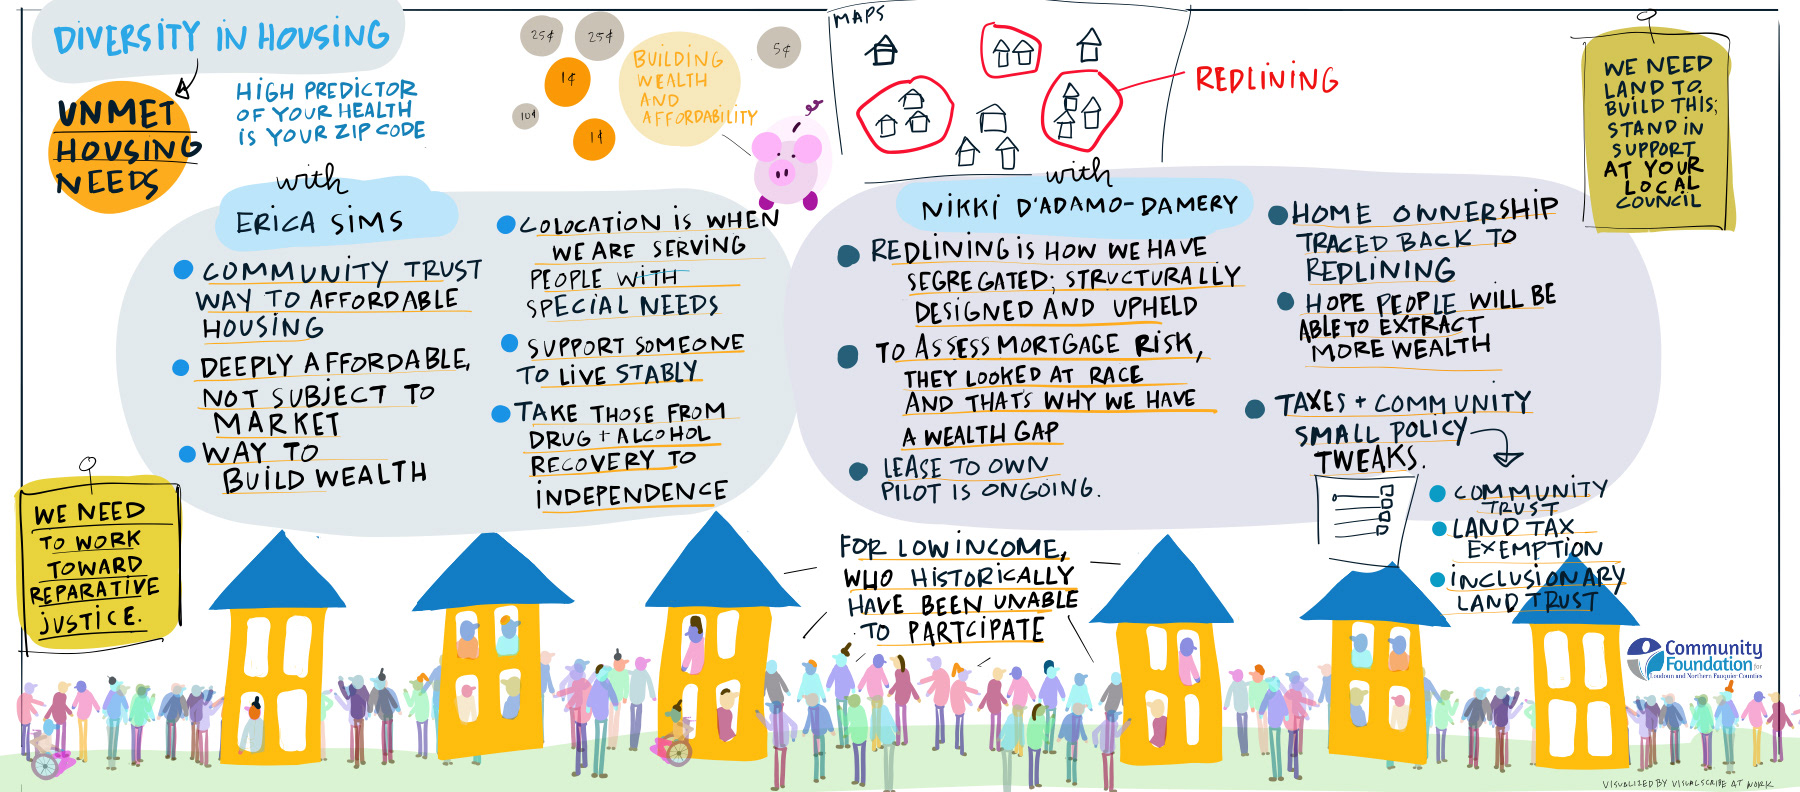 DIVERSITY IN HOUSING
UNMET
HOUSING
NEEDS
HIGH PREDICTOR
OF YOUR HEALTH
IS YOUR ZIP CODE
25¢
25¢
1¢
10¢
1¢
5¢
BUILDING
WEALTH
AND
AFFORDABILITY
MAPS
REDLINING
WE NEED
LAND TO
BUILD THIS;
STAND IN
SUPPORT
AT YOUR
LOCAL
COUNCIL
with
ERICA SIMS
COMMUNITY TRUST
WAY TO AFFORDABLE
HOUSING
DEEPLY AFFORDABLE,
NOT SUBJECT TO
MARKET
WAY TO
BUILD WEALTH
COLOCATION IS WHEN
WE ARE SERVING
PEOPLE WITH
SPECIAL NEEDS
SUPPORT SOMEONE
TO LIVE STABLY
TAKE THOSE FROM
DRUG + ALCOHOL
RECOVERY TO
INDEPENDENCE
with
NIKKI D'ADAMO-DAMERY
REDLINING IS HOW WE HAVE
SEGREGATED; STRUCTURALLY
DESIGNED AND UPHELD
TO ASSESS MORTGAGE RISK,
THEY LOOKED AT RACE
AND THAT'S WHY WE HAVE
A WEALTH GAP
LEASE TO OWN
PILOT IS ONGOING.
HOME OWNERSHIP
TRACED BACK TO
REDLINING
HOPE PEOPLE WILL BE
ABLE TO EXTRACT
MORE WEALTH
TAXES + COMMUNITY
SMALL POLICY
TWEAKS.
COMMUNITY
TRUST
LAND TAX
EXEMPTION
INCLUSIONARY
LAND TRUST
WE NEED
TO WORK
TOWARD
REPARATIVE
JUSTICE.
FOR LOW INCOME,
WHO HISTORICALLY
HAVE BEEN UNABLE
TO PARTCIPATE
Community
Foundation for
Loudoun and Northern Fauquier Counties
VISUALIZED BY VISUALSCRIBE AT WORK